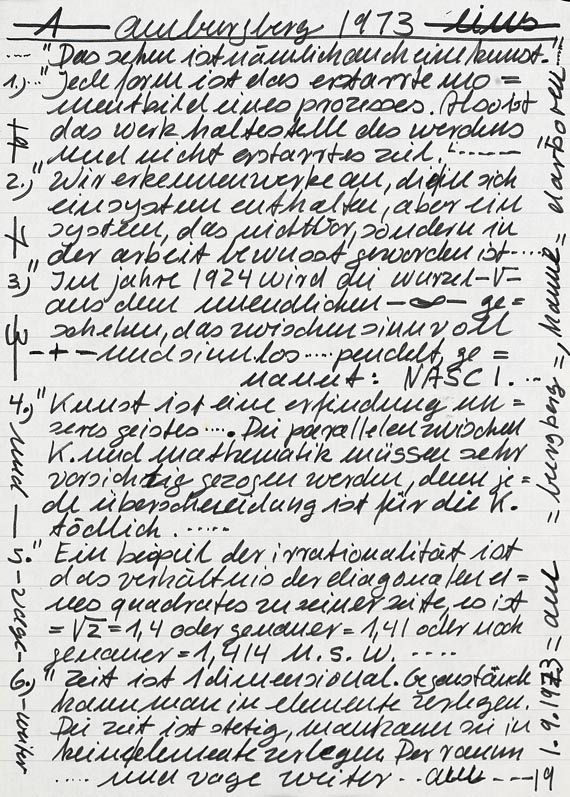 1 — amburgberg 1973 — eins
.... "Das sehen ist nämlich auch eine kunst."....
1.).. "Jede form ist das erstarrte mo =
mentbild eines prozesses. Also ist
das werk haltestelle des werdens
und nicht erstarrtes ziel."------
2.) "Wir erkennen werke an, die in sich
ein system enthalten, aber ein
system, das nicht vor, sondern in
der arbeit bewusst geworden ist....
3.) "Im jahre 1924 wird die wurzel -√-
aus dem unendlichen -∞- ge =
sehen, das zwischen sinnvoll
-+- und sinnlos .... pendelt, ge =
nannt: NASCI. ...
4.) "Kunst ist eine erfindung un =
seres geistes .... Die parallelen zwischen
K. und mathematik müssen sehr
vorsichtig gezogen werden, denn je =
de überschneidung ist für die K.
tödlich ......
5. "Ein beispiel der irrationalität ist
das verhältnis der diagonalen ei =
nes quadrates zu seiner seite, es ist
= √2 = 1,4 oder genauer = 1,41 oder noch
genauer = 1,414 u. s. w. ....
6.) "Zeit ist 1 dimensional. Gegenstände
kann man in elemente zerlegen.
Die zeit ist stetig, man kann sie in
keine elemente zerlegen. Der raum
..... und vage weiter ..am --- 19
und — vage - weiter
1.9.1973 = am = burgberg =, hanne = darboven